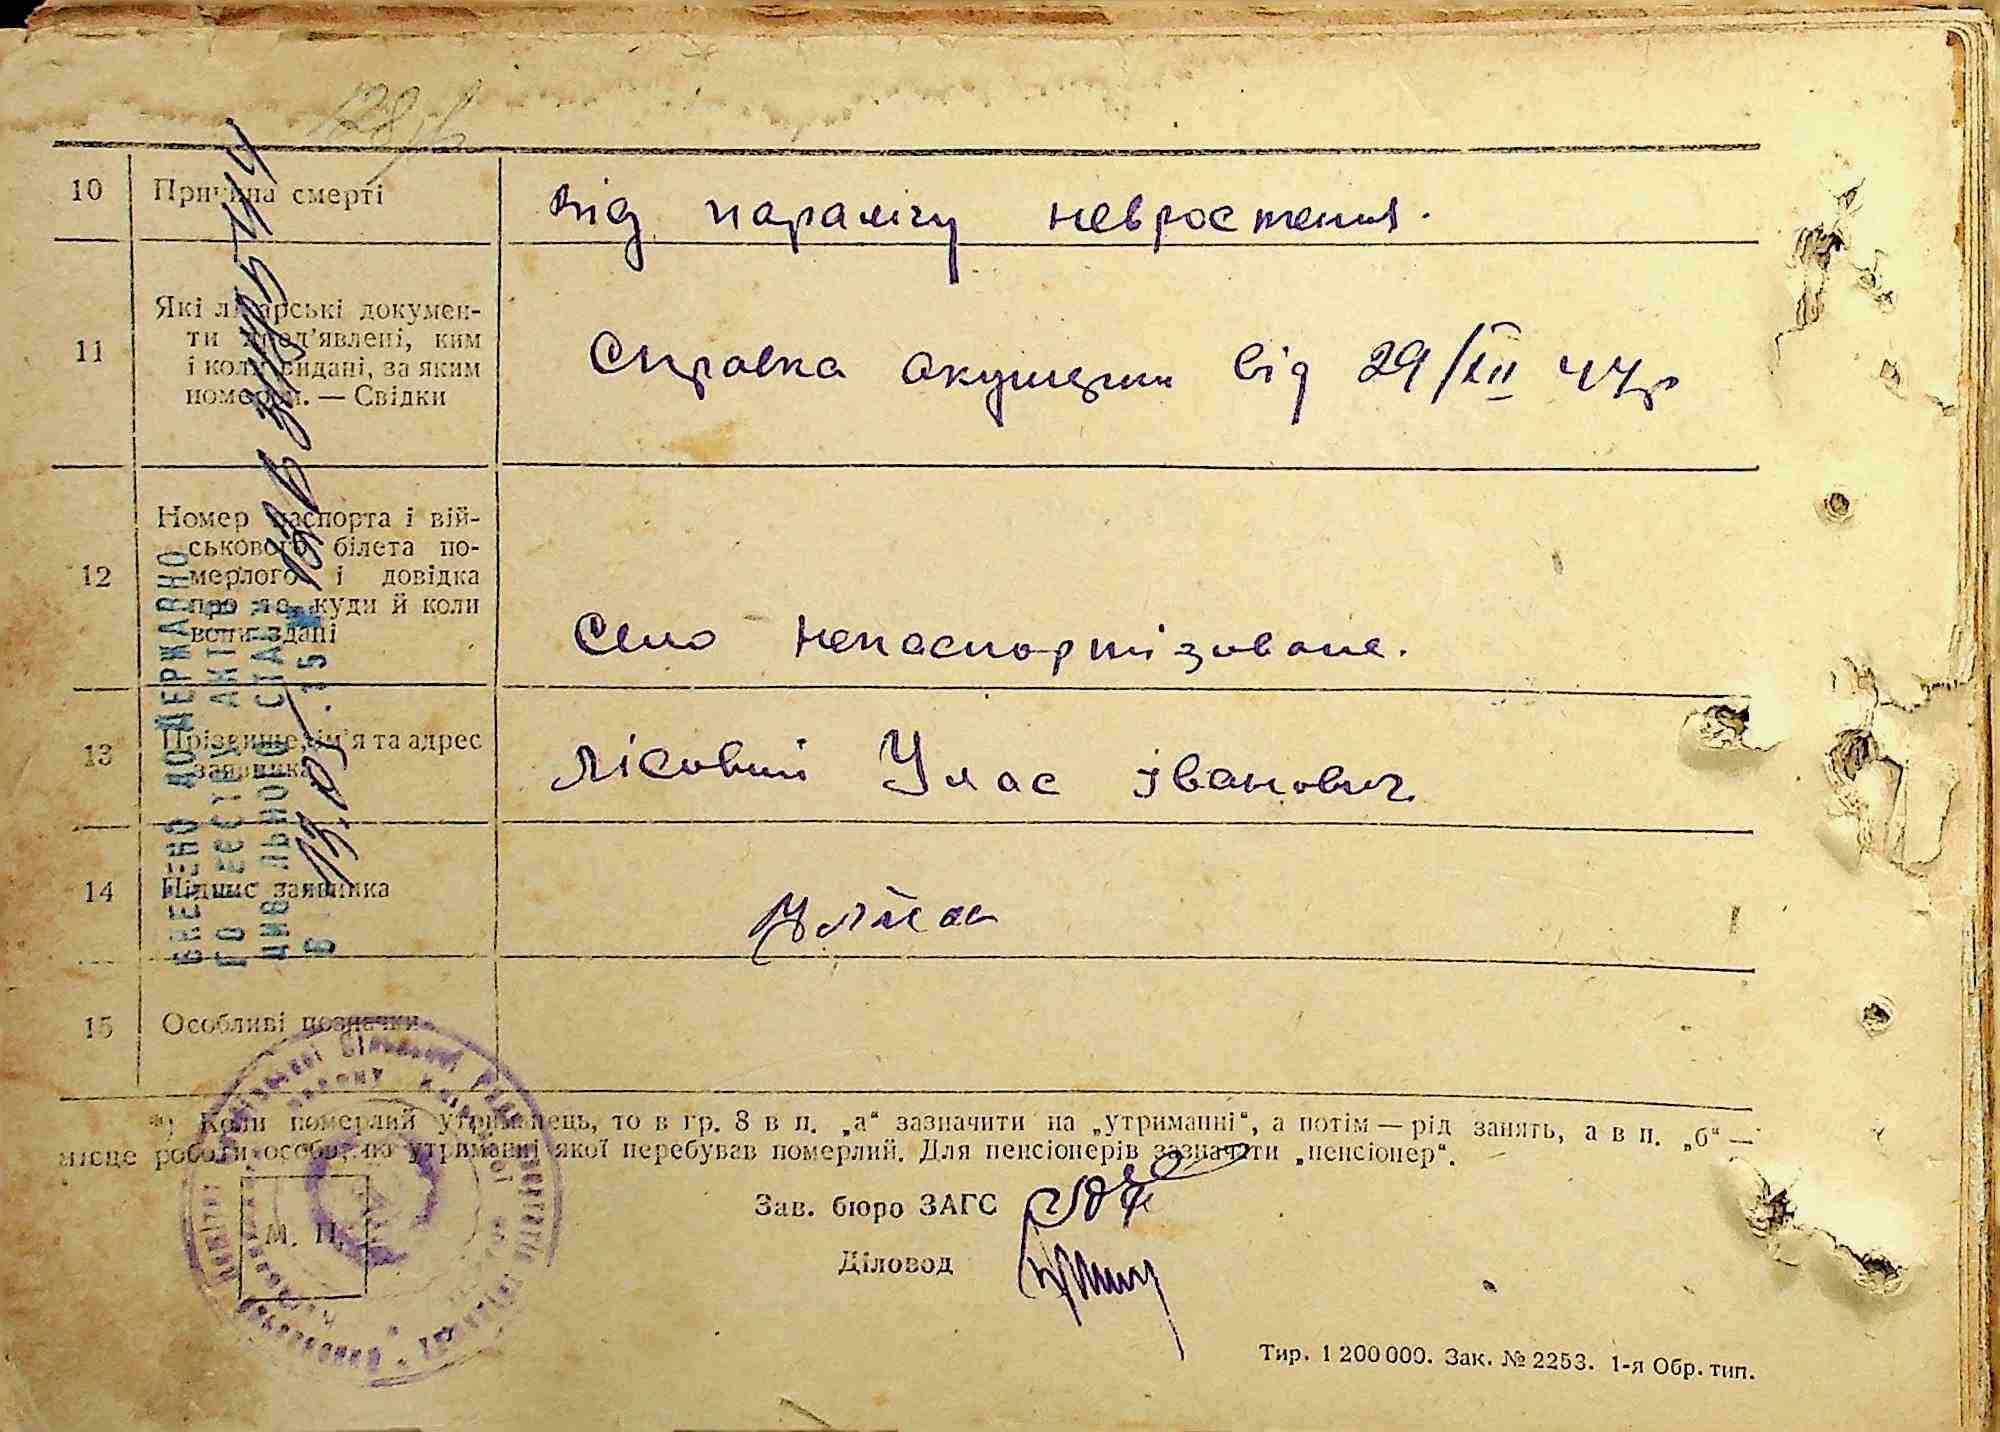 10 Причина смерті від паралічу невростения.
11 Які лікарські докумен-
ти пред'явлені, ким
і коли видані, за яким
номером. — Свідки
Справка акушерки від 29/XII 44р
12 Номер паспорта і вій-
ськового білета по-
мерлого і довідка
про те, куди й коли
вони здані
Село непаспортізоване.
13 Прізвище, ім'я та адрес
заявника
Лісовий Улас Іванович.
14 Підпис заявника
15 Особливі позначки
*) Коли померлий утриманець, то в гр. 8 в п. „а“ зазначити на „утриманні“, а потім — рід занять, а в п. „б“ —
місце роботи особи, на утриманні якої перебував померлий. Для пенсіонерів зазначити „пенсіонер“.
Зав. бюро ЗАГС
М. П.
Діловод
Тир. 1 200 000. Зак. № 2253. 1-я Обр. тип.
ВНЕСЕНО ДО ДЕРЖАВНО
ГО РЕЄСТРУ АКТІВ
ЦИВІЛЬНОГО СТАНУ